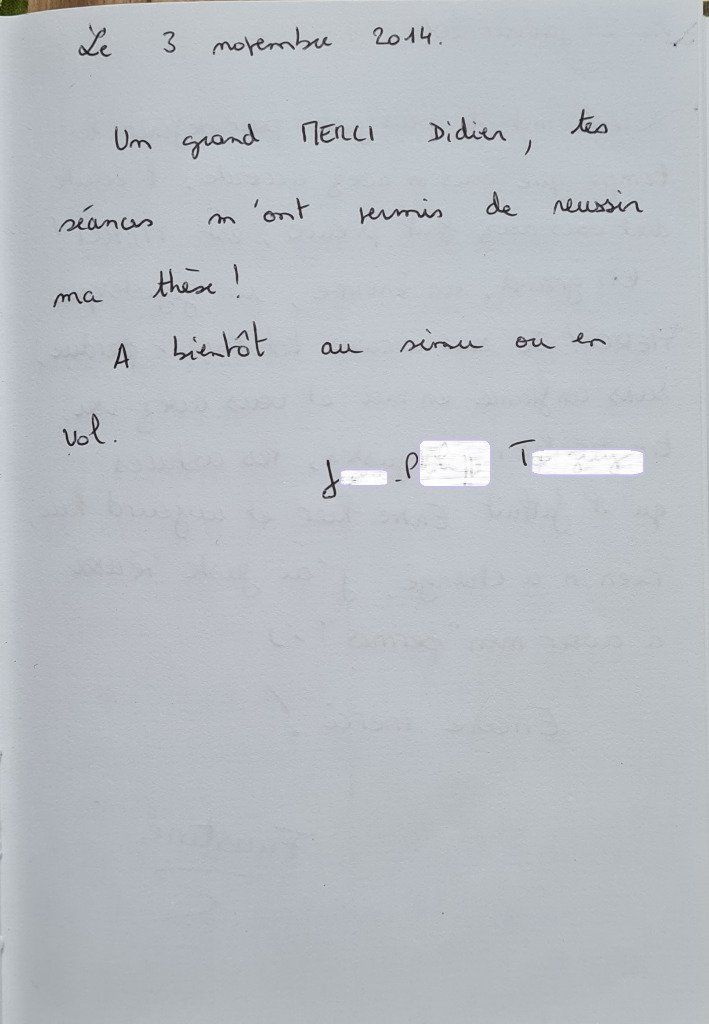 Le 3 novembre 2014.
Un grand MERCI Didier, tes
séances m'ont permis de reussir
ma thèse !
A bientôt au simu ou en
vol.
J -P T